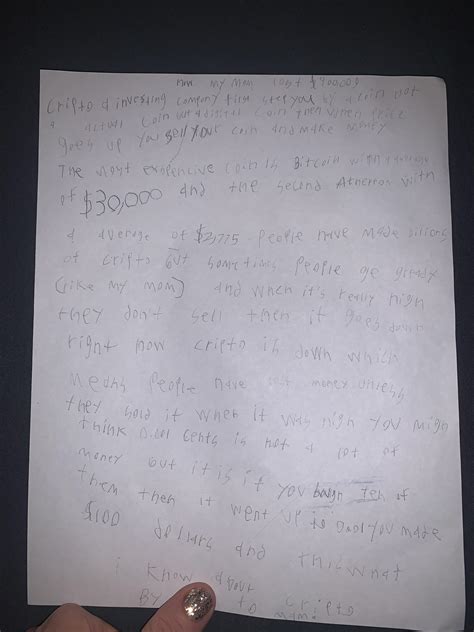 How my mom lost $
Cripto a investing company first step you by a coin not
a actual coin but a digital coin then when price
goes up you sell your coin and make money
The most expencive coin is Bitcoin with
of $30,000 and the second with
a average of $2,775 people have made
of cripto but sometimes people ge
(like my mom) and when it's really high
they don't sell then it goes down
right now cripto is down which
means people have lost money unless
they sold it when it was high you migh
think 0.001 cents is not a lot of
money but it is if you ten of
them then it went up to you made
$100 dollars and this what
i know about cripto
By